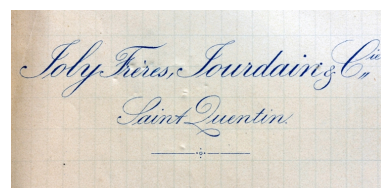 Joly Frères, Jourdain & Cie
Saint Quentin